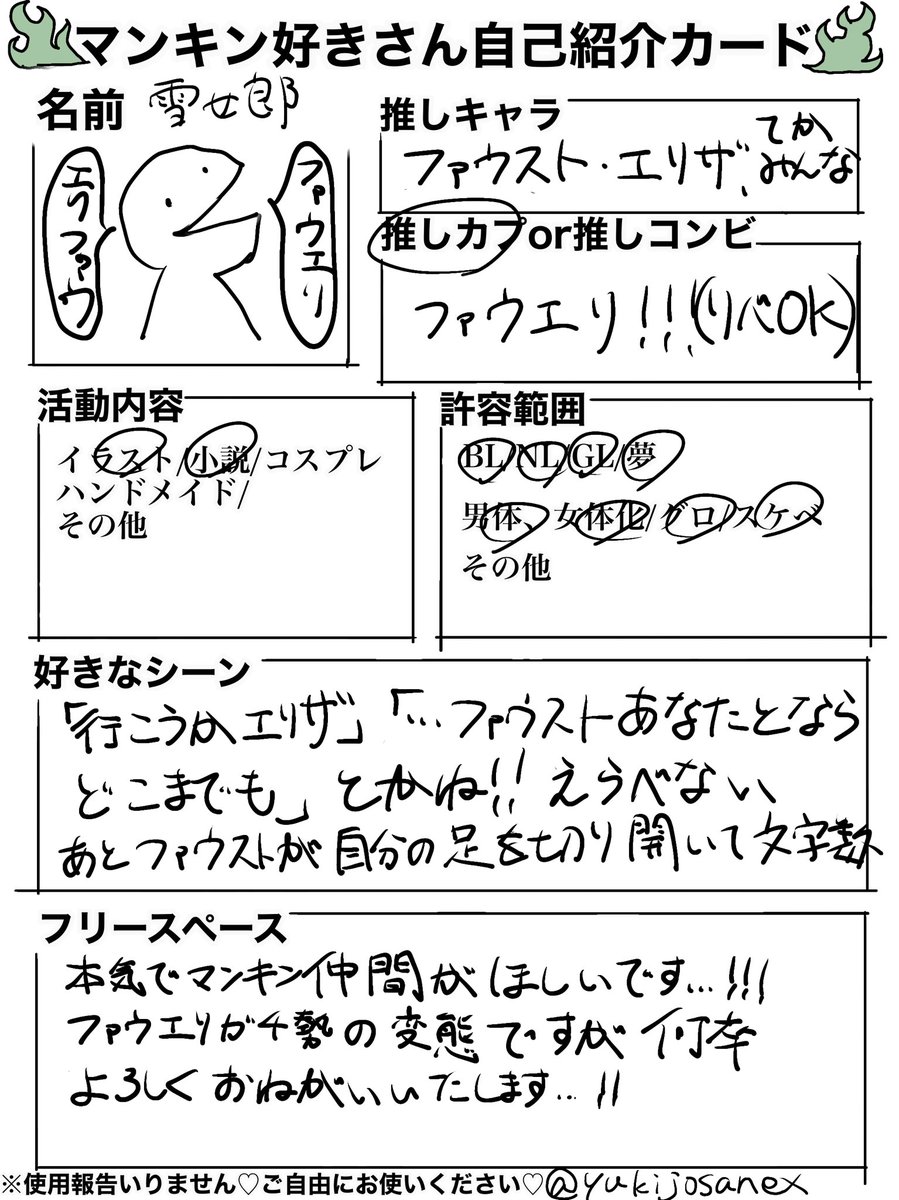 マンキン好きさん自己紹介カード
名前 雪女郎
エリファウ
ファウエリ
推しキャラ
ファウスト・エリザ、てかみんな
推しカプor推しコンビ
ファウエリ!!!(リバOK)
活動内容
イラスト/小説/コスプレ
ハンドメイド/
その他
許容範囲
BL/NL/GL/夢
男体、女体化/グロ/スケベ
その他
好きなシーン
「行こうかエリザ」「…ファウストあなたとなら
どこまでも」とかね!!えらべない
あとファウストが自分の足を切り開いて文字数
フリースペース
本気でマンキン仲間がほしいです…!!!
ファウエリガチ勢の変態ですが何卒
よろしくおねがいいたします…!!
※使用報告いりません♡ご自由にお使いください♡@yukijosanex